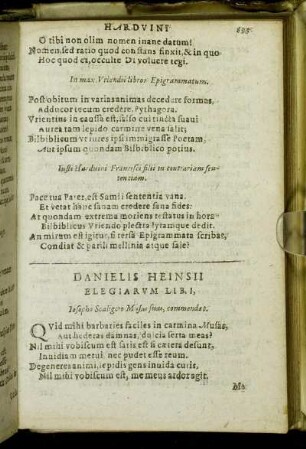 HARDVINI
O tibi non olim nomen inane datum!
Nomen, sed ratio quod constans finxit, & in quo
Hoc quod es, occulte Di voluere tegi.
In max. Vriendii libros Epigrammatum.
Post obitum in varias animas decedere formas,
Adducor tecum credere, Pythagora.
Vrientius in caussa est, salso cui tincta suavi
Aurea tam lepido carmine vena salit;
Bilbilicus vt jures ipsi immigrasse Poetam,
Aut ipsum quondam Bilbilico potius.
Iusti Harduini Francisci filii in contrariam sen-
tentiam.
Pace tua Pater, est Samii sententia vana.
Et vetat hanc sanam credere sana fides:
At quondam extrema moriens testatus in hora
Bilbilicus Vriendo plectra lyramque dedit.
An mirum est igitur, si tersa Epigrammata scribat,
Condiat & parili mellinia atque sale?
DANIELIS HEINSII
ELEGIARVM LIB. I,
Iosepho Scaligero Musas suas, commendat.
QVid mihi barbaries faciles in carmina Musas,
Aut hederas damnas, dulcia serta meas?
Nil mihi vobiscum est satis est si cætera desunt,
Invidiam merui, nec pudet esse reum.
Degeneres animi, lepidi gens invida curis,
Nil mihi vobiscum est, me meus ardor agit.